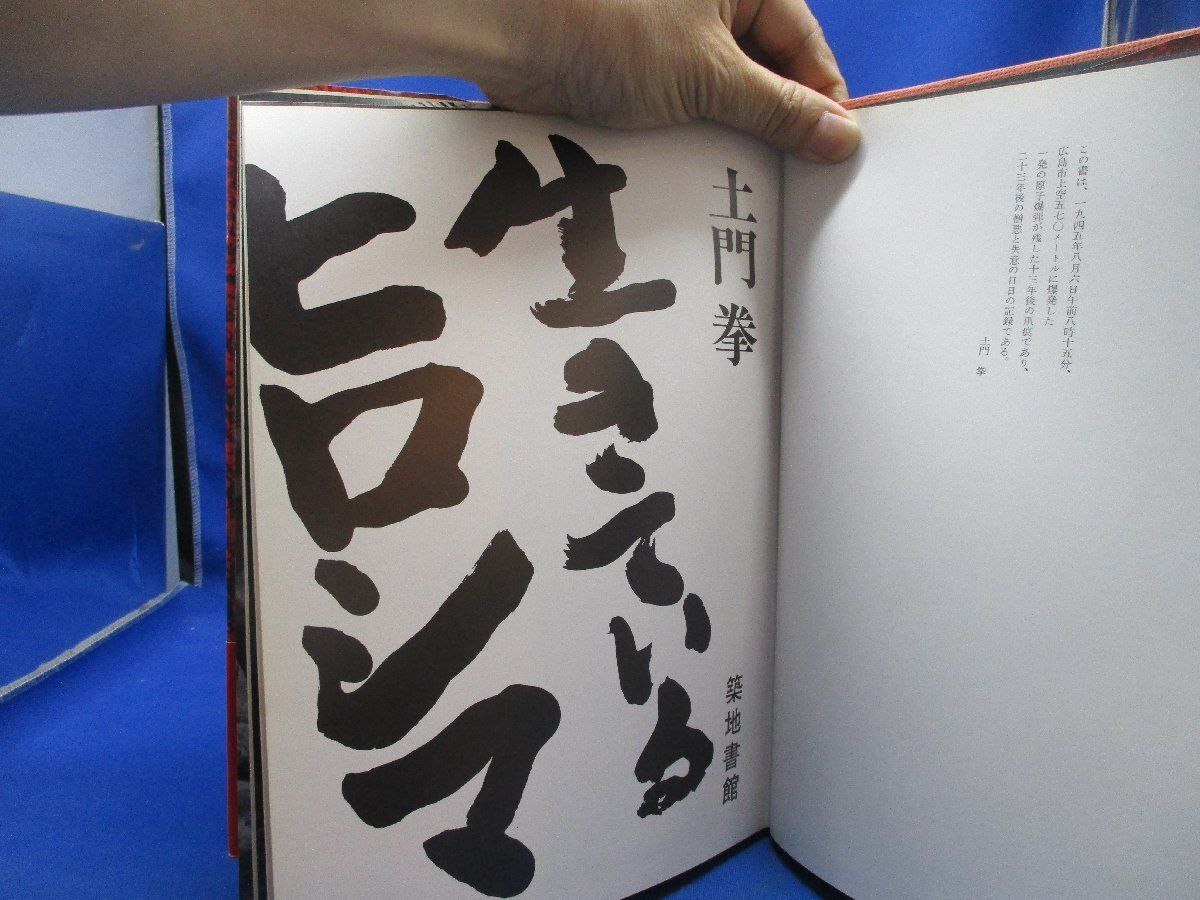 この書は、一九四五年八月六日午前八時十五分、
広島市上空五七〇メートルに爆発した
一発の原子爆弾が残した十三年後の爪痕であり、
二十三年後の憎悪と失意の日日の記録である。
土門 拳
土門 拳
築地書館
生きている
ヒロシマ